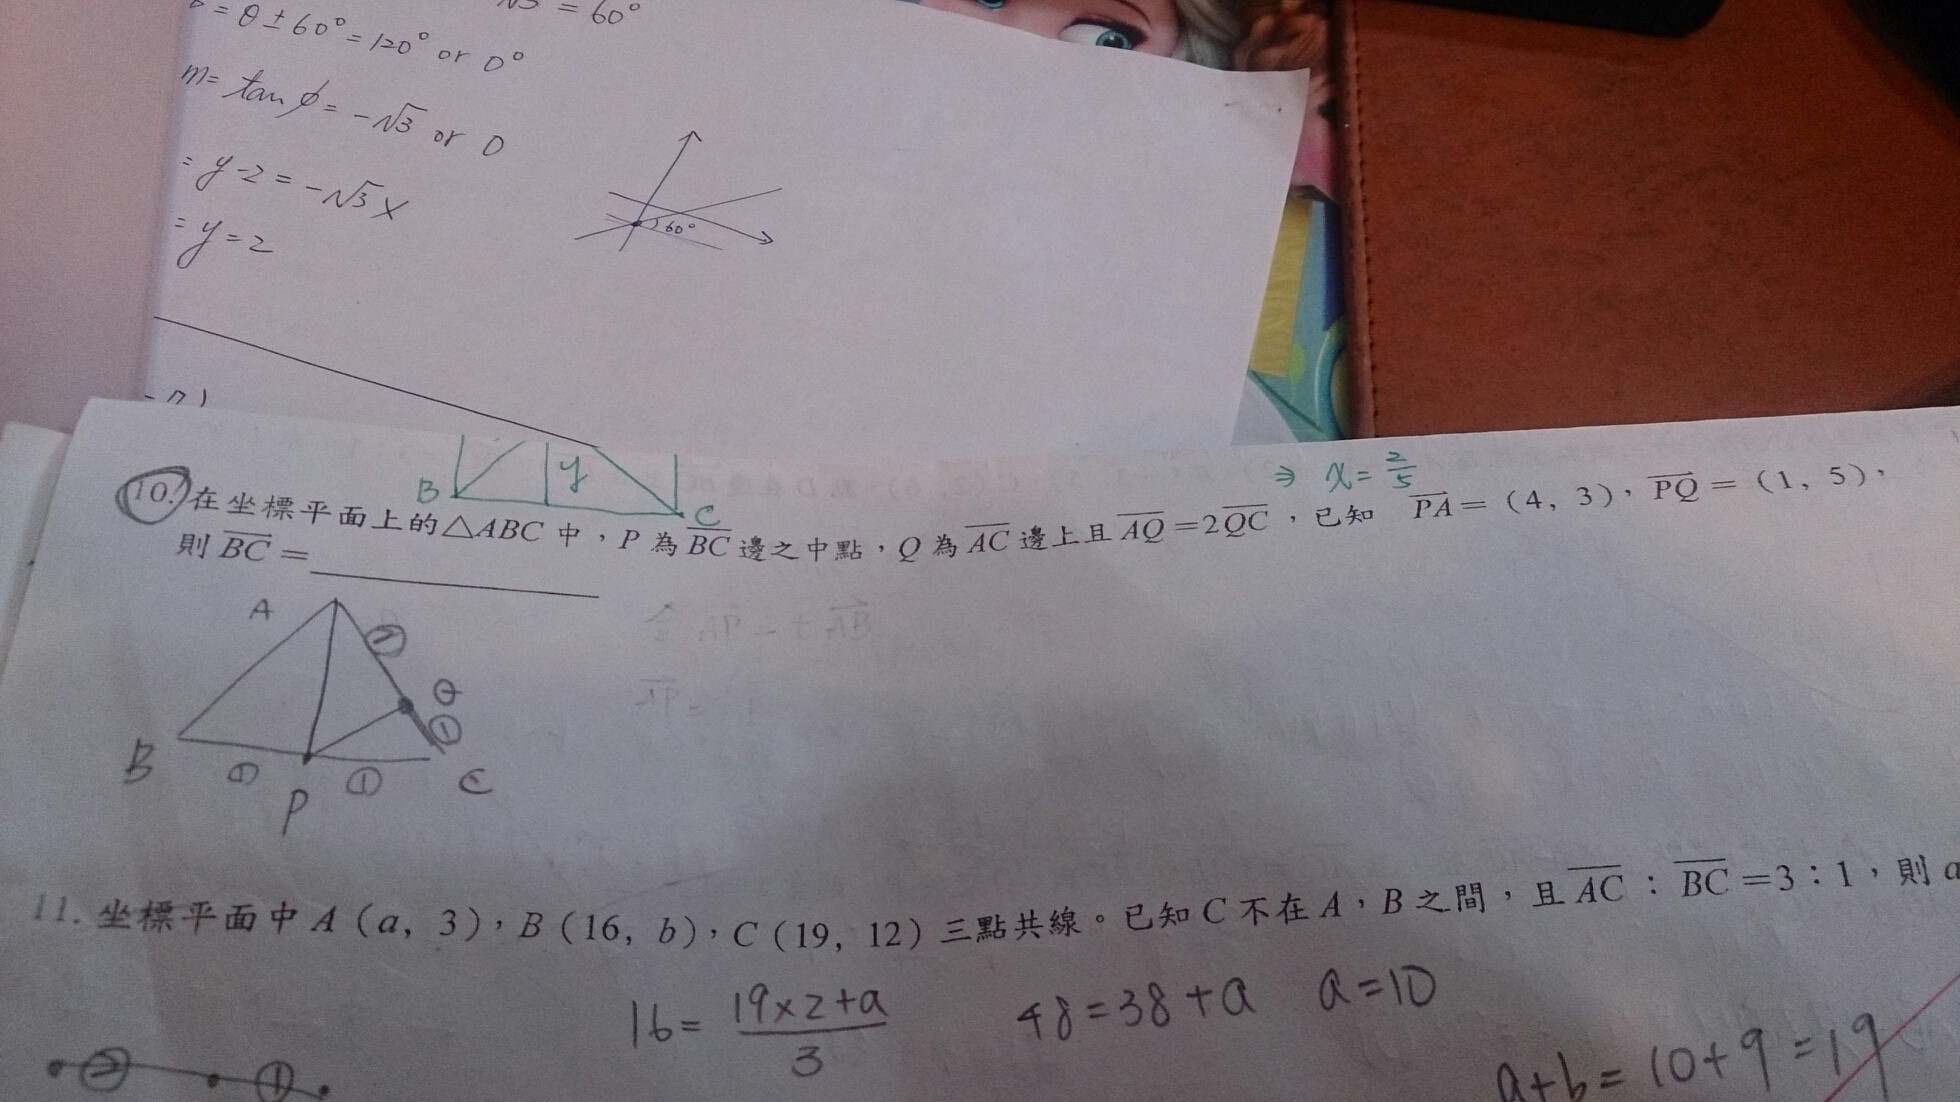 √3 = 60°
= θ ± 60° = 120° or 0°
m = tan ϕ = -√3 or 0
= y-2 = -√3 x
= y = 2
60°
B
y
C
⇒ x = 2/5
10. 在坐標平面上的△ABC 中，P 為 BC 邊之中點，Q 為 AC 邊上且 AQ=2QC，已知 PA=(4, 3)，PQ=(1, 5)，
則 BC =
A
②
Q
①
B
①
P
①
C
11. 坐標平面中 A(a, 3)，B(16, b)，C(19, 12) 三點共線。已知 C 不在 A，B 之間，且 AC：BC=3：1，則 a
16 = (19×2+a)/3
48=38+a
a=10
② ①
a+b=10+9=19